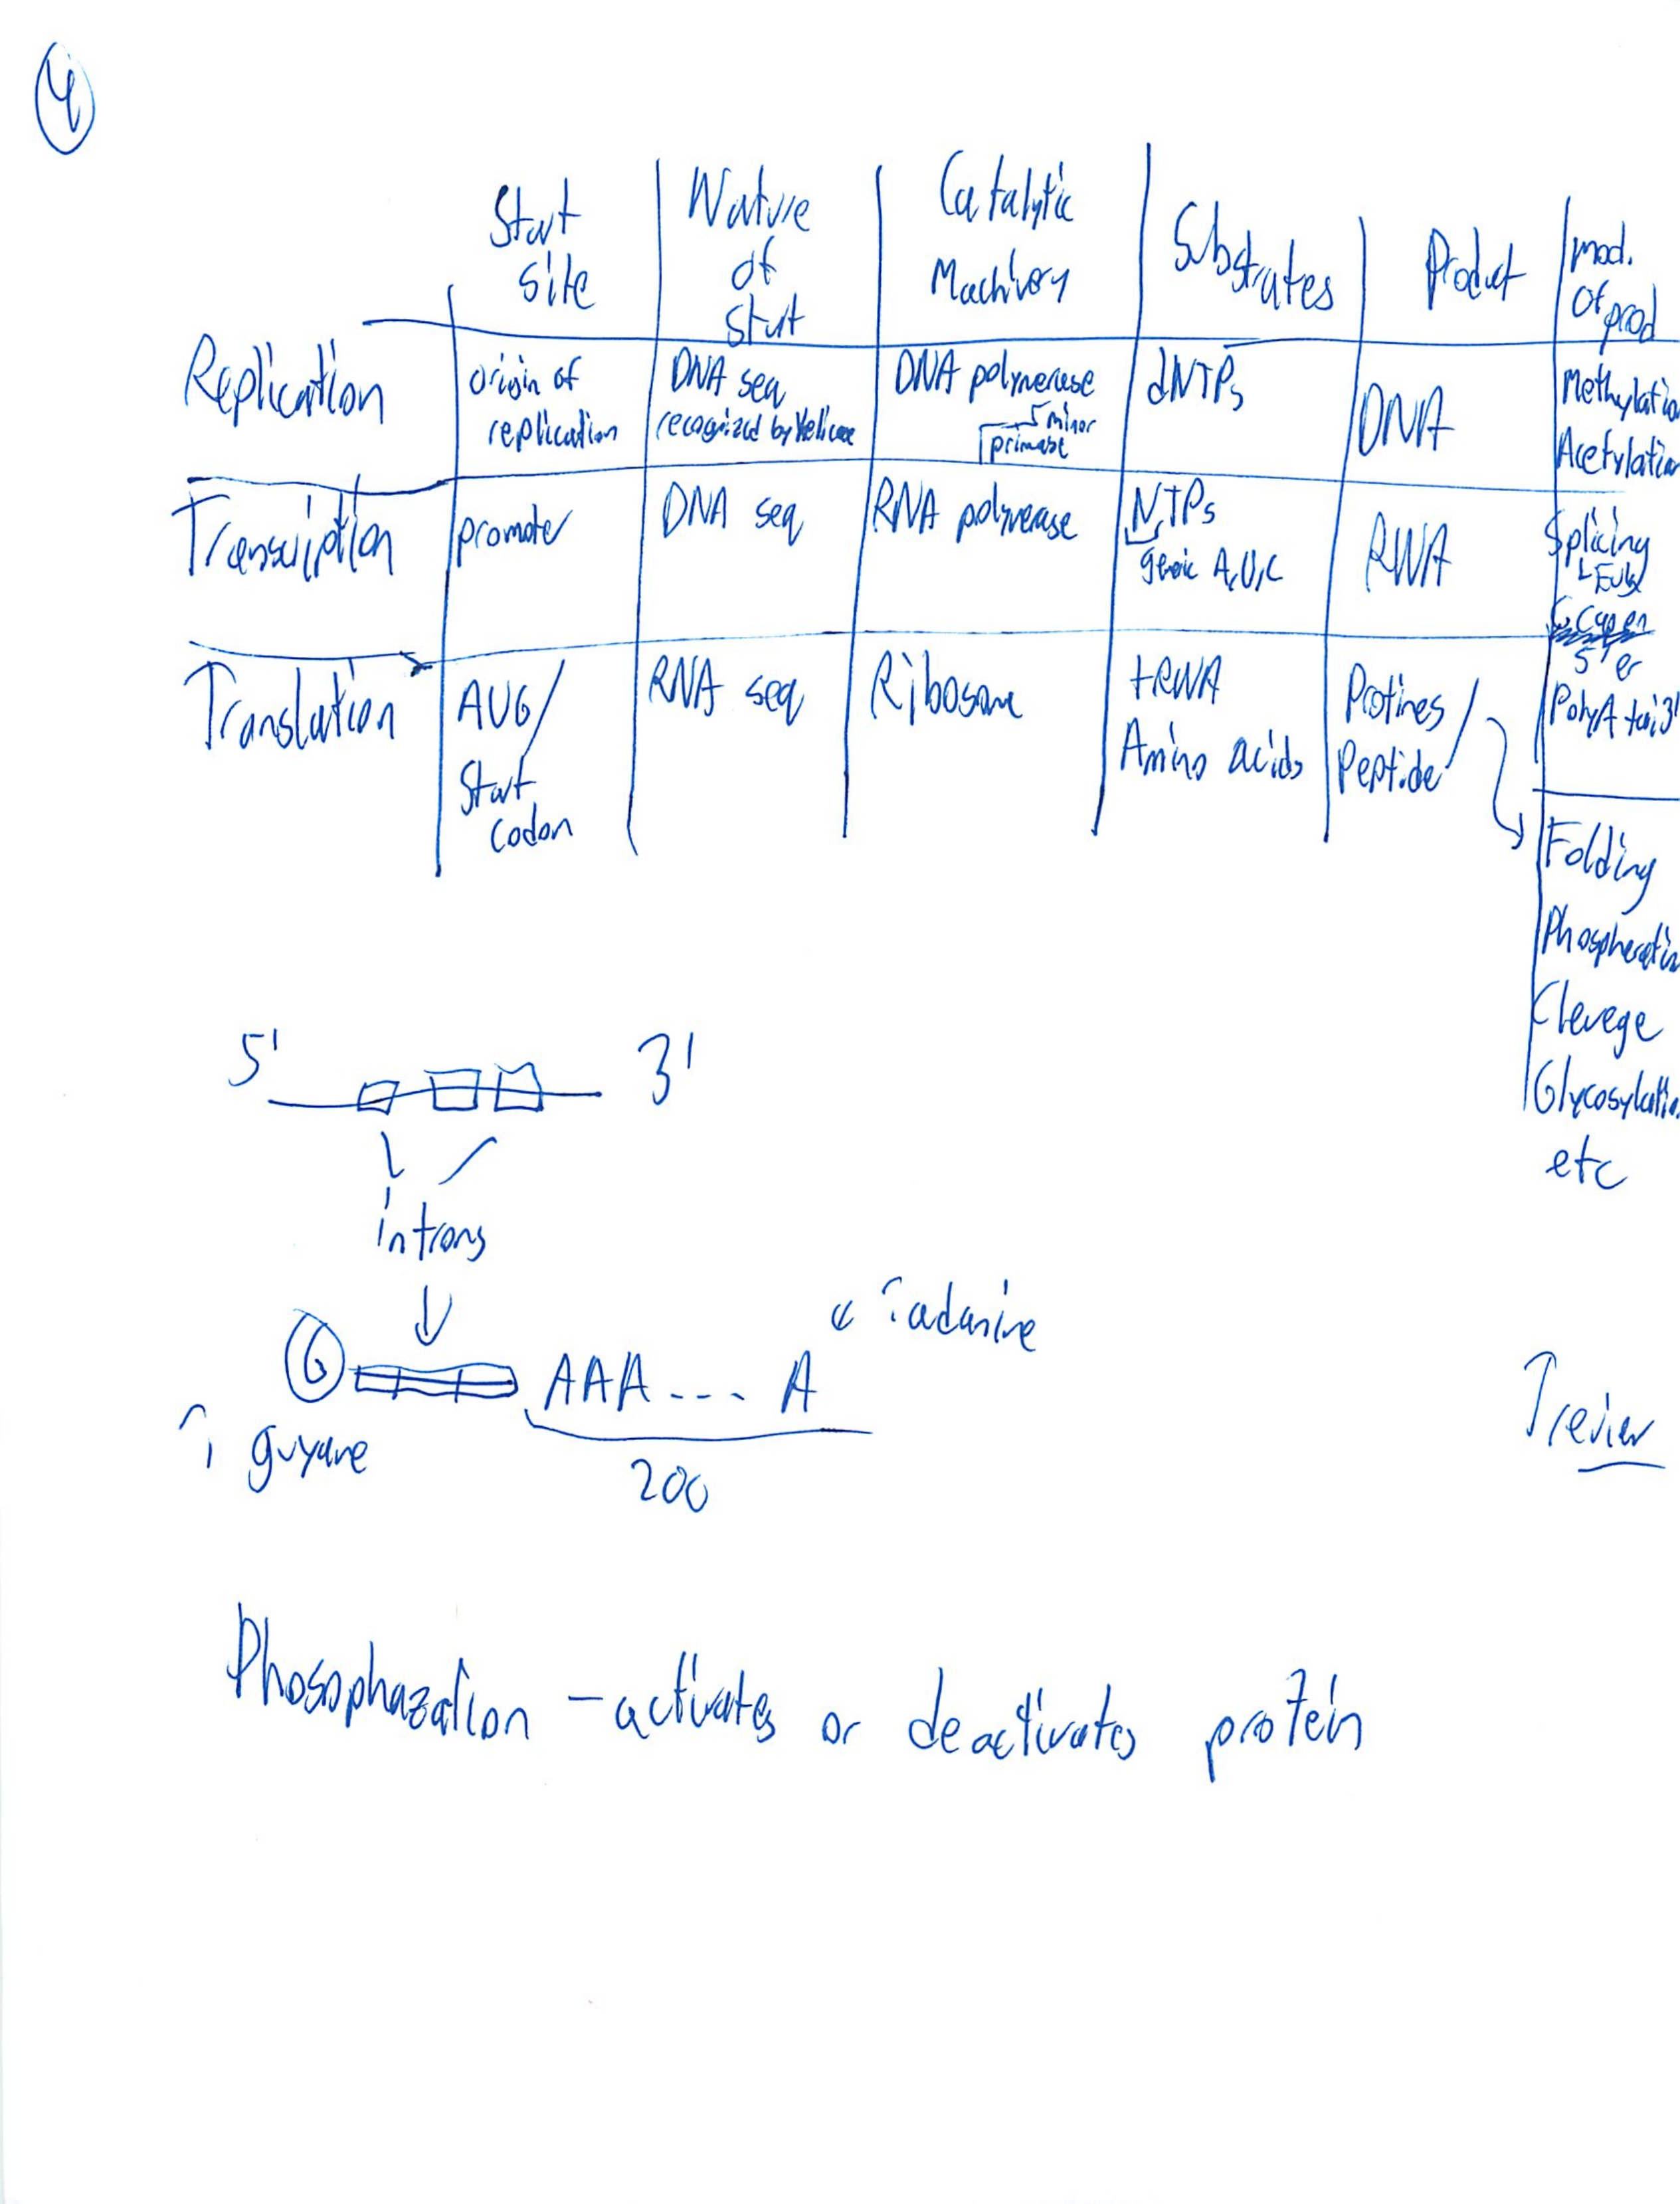 4
Start site
Nature of Start
Catalytic Machinery
Substrates
Product
mod. of prod
Replication
origin of replication
DNA seq recognized by Helicase
DNA polymerase
minor
primase
dNTPs
DNA
Methylatio
Acetylation
Transcription
promoter
DNA seq
RNA polymerase
NTPs
A, U, C
RNA
Splicing
Euk
5'
PolyA tail 3'
Translation
AUG/
Start codon
RNA seq
Ribosome
tRNA
Amino acids
Protines/
Peptide
Folding
Phospheratin
Clevege
Glycosylatio
etc
5' 3'
introns
adanine
G AAA --- A
guyane
200
review
Phosophazation - activates or deactivates protein